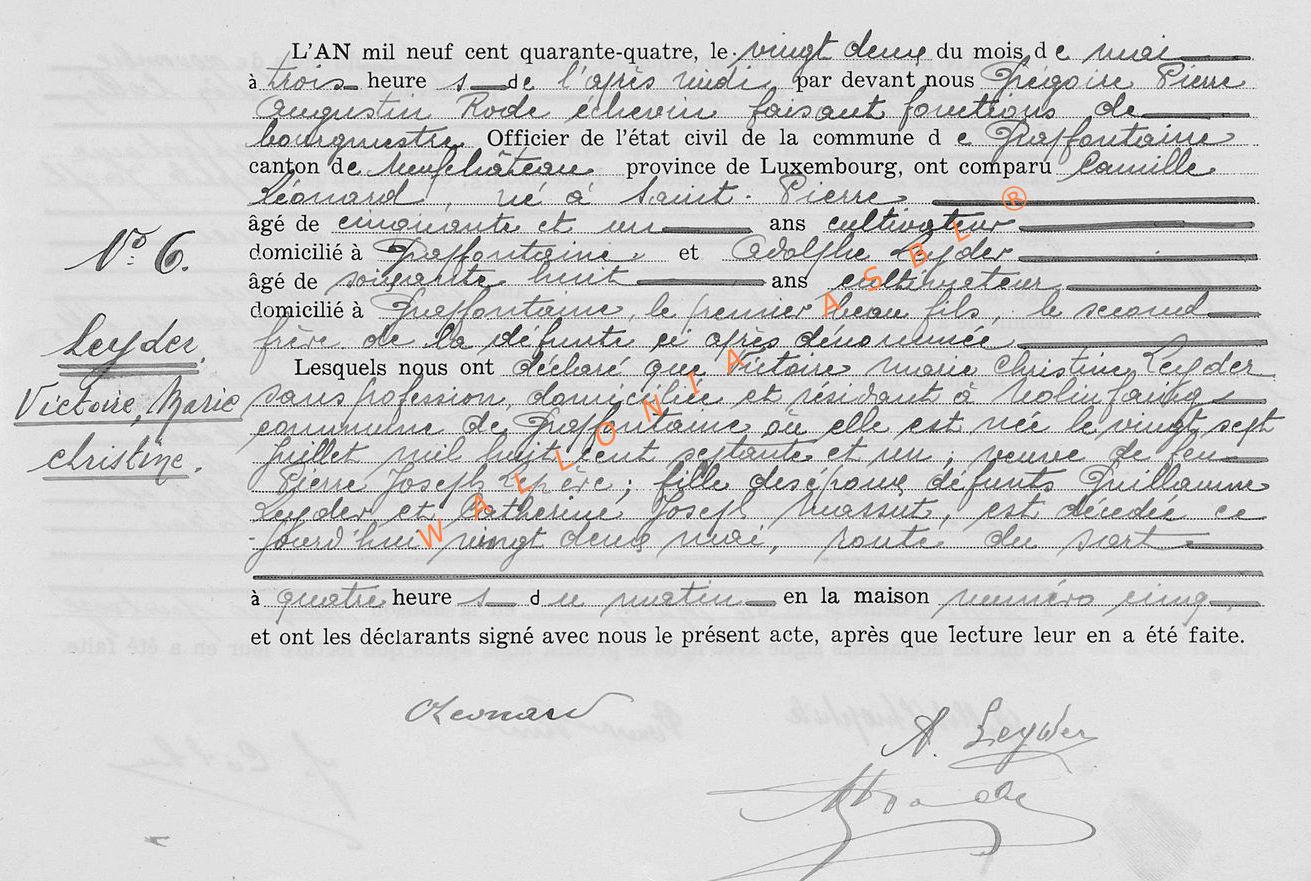 L'AN mil neuf cent quarante-quatre, le vingt deux du mois de mai
à trois heures de l'après midi par devant nous Grégoire Pierre
Augustin Rode échevin faisant fonctions de
bourgmestre Officier de l'état civil de la commune de Graffontaine
canton de Neufchâteau province de Luxembourg, ont comparu Camille
Léonard, né à Saint-Pierre
âgé de cinquante et un ans cultivateur
domicilié à Graffontaine et Adolphe Leyder
âgé de soixante huit ans cultivateur
domicilié à Graffontaine, le premier beau fils, le second
frère de la défunte ci après dénommée
N° 6.
Leyder,
Victoire, Marie
Christine.
Lesquels nous ont déclaré que Victoire Marie Christine Leyder
sans profession, domiciliée et résidant à
commune de Graffontaine où elle est née le vingt sept
juillet mil huit cent septante et un; veuve de feu
Pierre Joseph; fille des époux défunts Guillaume
Leyder et Catherine Joseph Massut, est décédée ce
jourd'hui vingt deux mai, route du Sart
à quatre heures du matin en la maison numéro cinq
et ont les déclarants signé avec nous le présent acte, après que lecture leur en a été faite.
Leonard
A. Leyder
WALLONIA ASBL ®